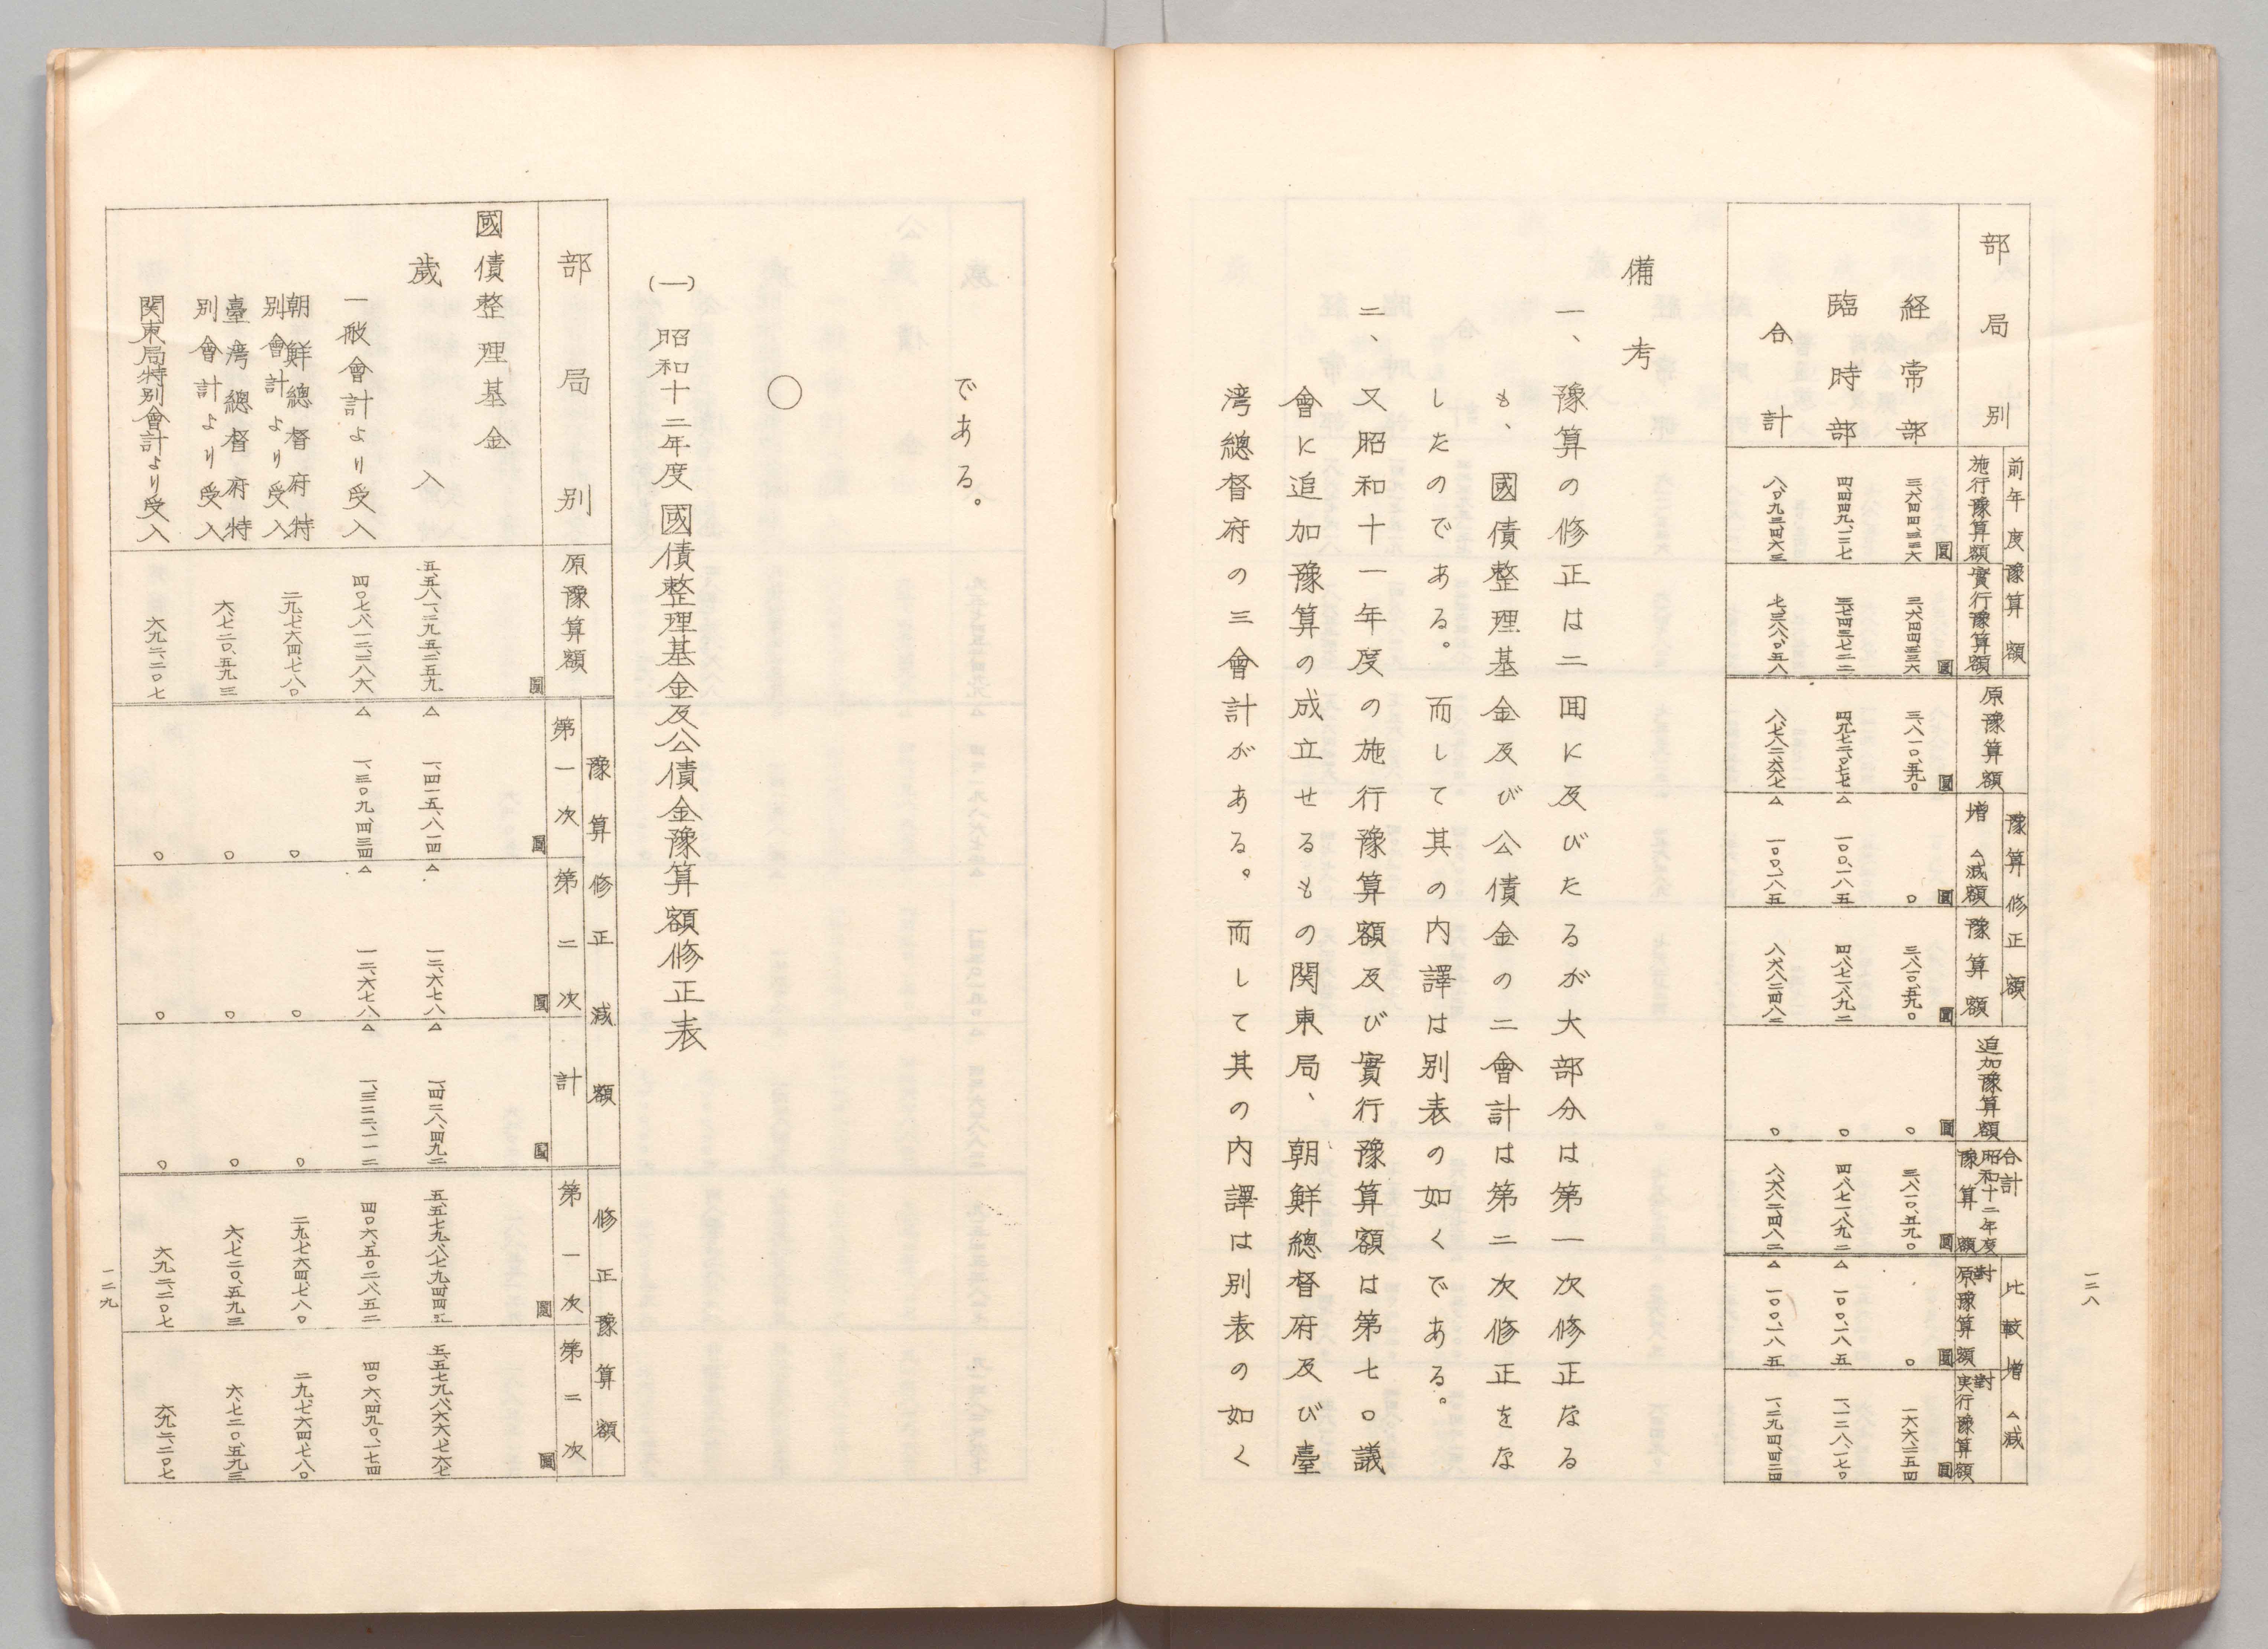 一二八
部局別 前年度豫算額 施行豫算額 實行豫算額 原豫算額 豫算修正額 増△減額 豫算額 追加豫算額 合計昭和十二年度豫算額 比較増△減 對原豫算額 對実行豫算額
圓 圓 圓 圓 圓 圓 圓 圓 圓
経常部 三、六四四、三三六 三、六四四、三三六 三、八一〇、五九〇 〇 三、八一〇、五九〇 〇 三、八一〇、五九〇 〇 一六六、二五四
臨時部 四、四四九、一二七 三、七四三、七二二 四、九七二、〇七七 △一〇〇、一八五 四、八七一、八九二 〇 四、八七一、八九二 △一〇〇、一八五 一、一二八、一七〇
合計 八、〇九三、四六三 七、三八八、〇五八 八、七八二、六六七 △一〇〇、一八五 八、六八二、四八二 〇 八、六八二、四八二 △一〇〇、一八五 一、二九四、四二四
備考
一、豫算の修正は二囬に及びたるが大部分は第一次修正なる
も、國債整理基金及び公債金の二會計は第二次修正をな
したのである。而して其の内譯は別表の如くである。
二、又昭和十一年度の施行豫算額及び實行豫算額は第七〇議
會に追加豫算の成立せるもの関東局、朝鮮總督府及び臺
湾總督府の三會計がある。而して其の内譯は別表の如く
である。
〇
(一)昭和十二年度國債整理基金及公債金豫算額修正表
部局別 原豫算額 豫算修正減額 第一次 第二次 計 修正豫算額 第一次 第二次
圓 圓 圓 圓 圓 圓
國債整理基金
歳入 五、五八一、二九五、二五九 △一、四一五、八一四 △一二、六七八 △一、四二八、四九二 五、五七九、八七九、四四五 五、五七九、八六六、七六七
一般會計より受入 四〇七、八一二、二八六 △一、三〇九、四三四 △一二、六七八 △一、三二二、一一二 四〇六、五〇二、八五二 四〇六、四九〇、一七四
朝鮮總督府特
別會計より受入 二九、七六四、七八〇 〇 〇 〇 二九、七六四、七八〇 二九、七六四、七八〇
臺湾總督府特
別會計より受入 六、七二〇、五九三 〇 〇 〇 六、七二〇、五九三 六、七二〇、五九三
関東局特別會計より受入 六九二、二〇七 〇 〇 〇 六九二、二〇七 六九二、二〇七
一二九